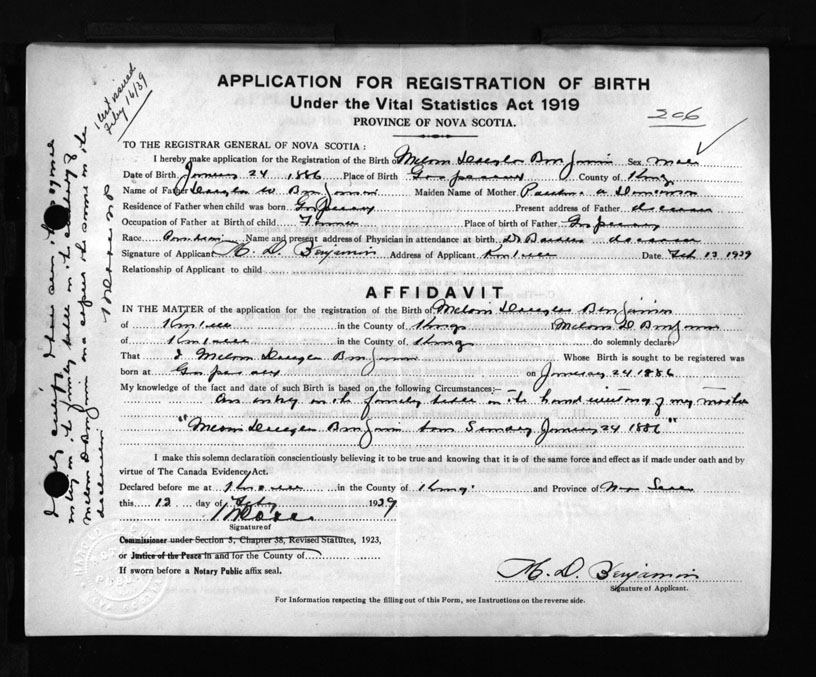 Cert issued
Feby 16/39
APPLICATION FOR REGISTRATION OF BIRTH
Under the Vital Statistics Act 1919
PROVINCE OF NOVA SCOTIA.
206
TO THE REGISTRAR GENERAL OF NOVA SCOTIA :
I hereby make application for the Registration of the Birth of Benjamin Sex Male
Date of Birth January 24 1886 Place of Birth Gaspereau County of Kings
Name of Father W Benjamin Maiden Name of Mother a
Residence of Father when child was born Gaspereau Present address of Father deceased
Occupation of Father at Birth of child Farmer Place of birth of Father Gaspereau
Race Name and present address of Physician in attendance at birth Dr deceased
Signature of Applicant M. D. Benjamin Address of Applicant Date Feb 13 1939
Relationship of Applicant to child
AFFIDAVIT
IN THE MATTER of the application for the registration of the Birth of Benjamin
of in the County of Kings I D Benjamin
of in the County of Kings do solemnly declare
That I Benjamin Whose Birth is sought to be registered was
born at Gaspereau on January 24 1886
My knowledge of the fact and date of such Birth is based on the following Circumstances:—
An entry in the family bible in the hand writing of my mother
" Benjamin born Sunday January 24 1886"
I make this solemn declaration conscientiously believing it to be true and knowing that it is of the same force and effect as if made under oath and by
virtue of The Canada Evidency Act.
Declared before me at in the County of Kings and Province of Nova Scotia
this 13 day of Feby 1939
Signature of
Commissioner under Section 5, Chapter 38, Revised Statutes, 1923,
or Justice of the Peace in and for the County of
If sworn before a Notary Public affix seal.
M. D. Benjamin
Signature of Applicant.
For Information respecting the filling out of this Form, see Instructions on the reverse side.
I certify I have seen the
entry in the family bible in the custody of
D Benjamin and the same in the
declaration